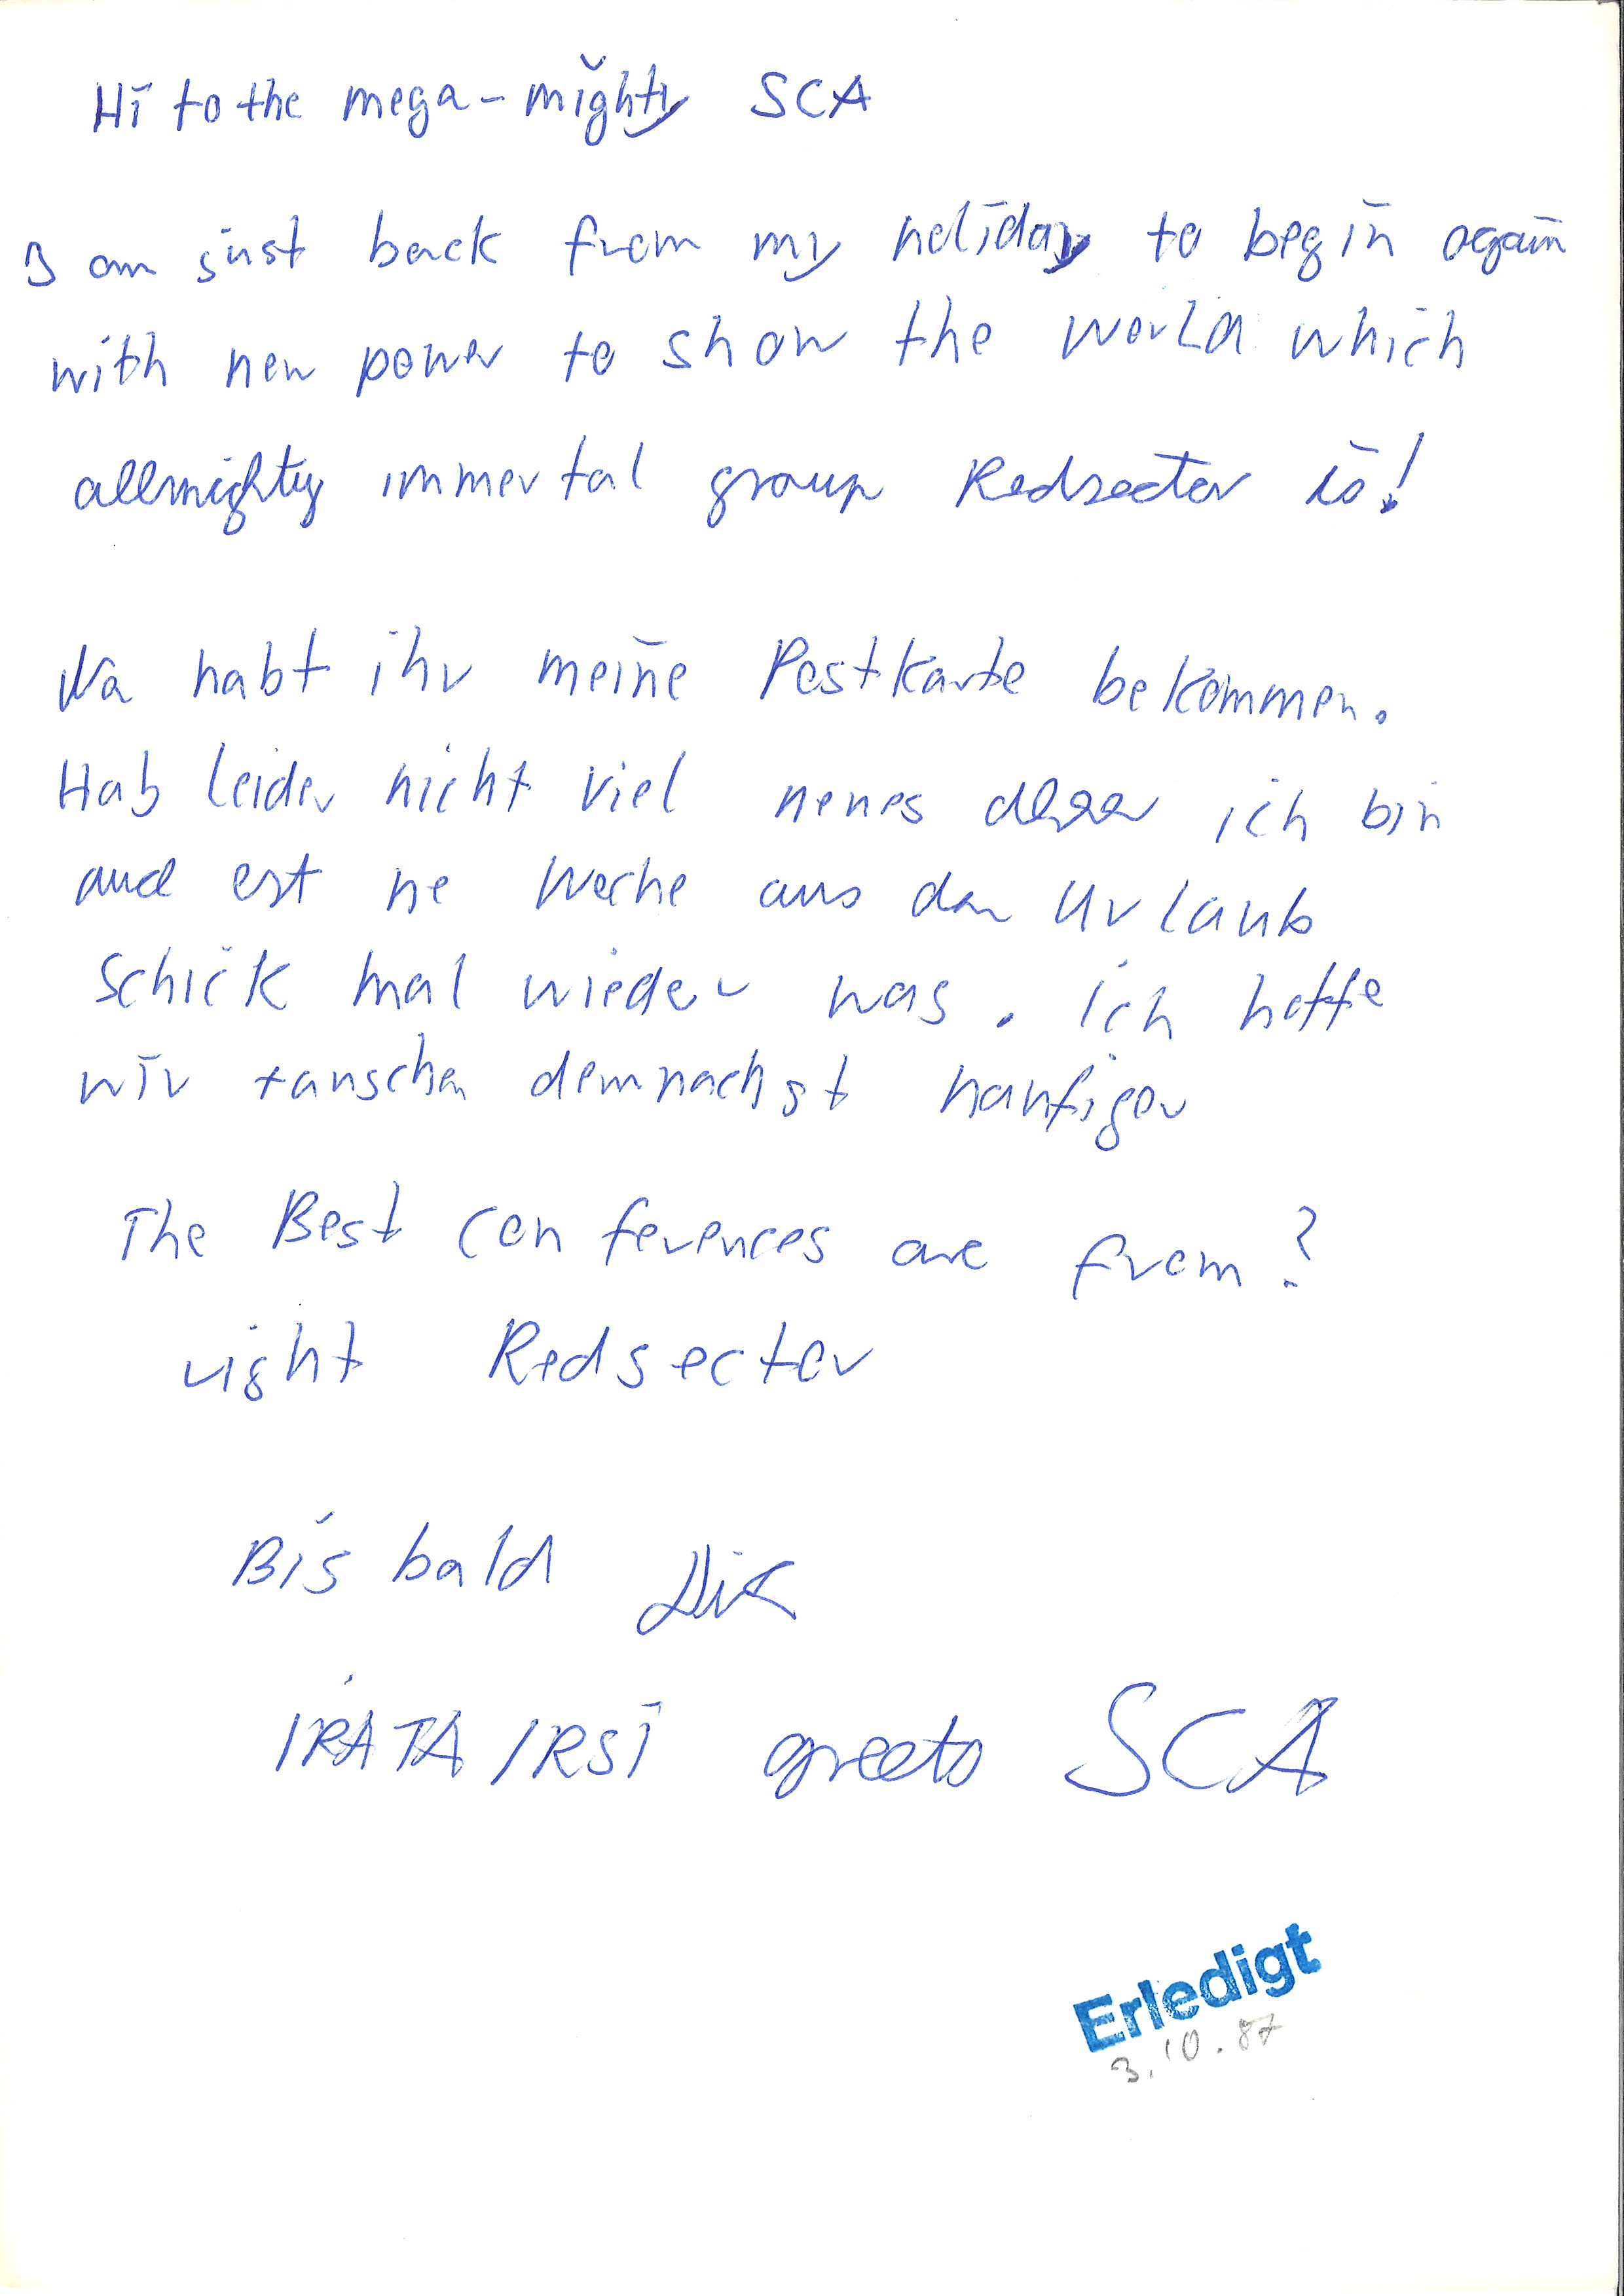 Hi to the mega-mighty SCA
I am just back from my holiday to begin again
with new power to show the world which
allmighty immortal group Redsector is!
Na habt ihr meine Postkarte bekommen.
Hab leider nicht viel neues aber ich bin
auch erst ne Woche aus den Urlaub
Schick mal wieder was. Ich hoffe
wir tauschen demnachst haufiger
The Best conferences are from?
right Redsector
Bis bald
IRATA /RSI greets SCA
Erledigt
3.10.87